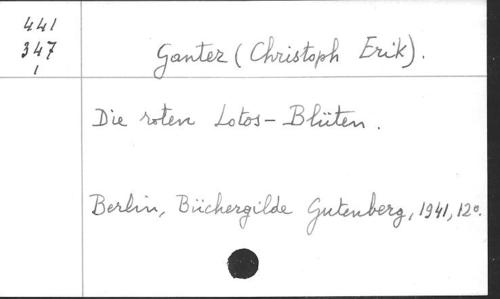 441
347
1
Ganter (Christoph Erik).
Die roten Lotos-Blüten.
Berlin, Büchergilde Gutenberg, 1941, 12º.